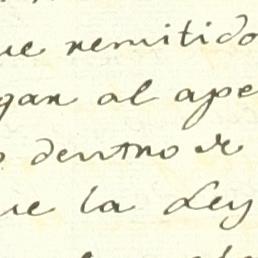 ue remitido
gan al ape
dentro de
ue la Ley